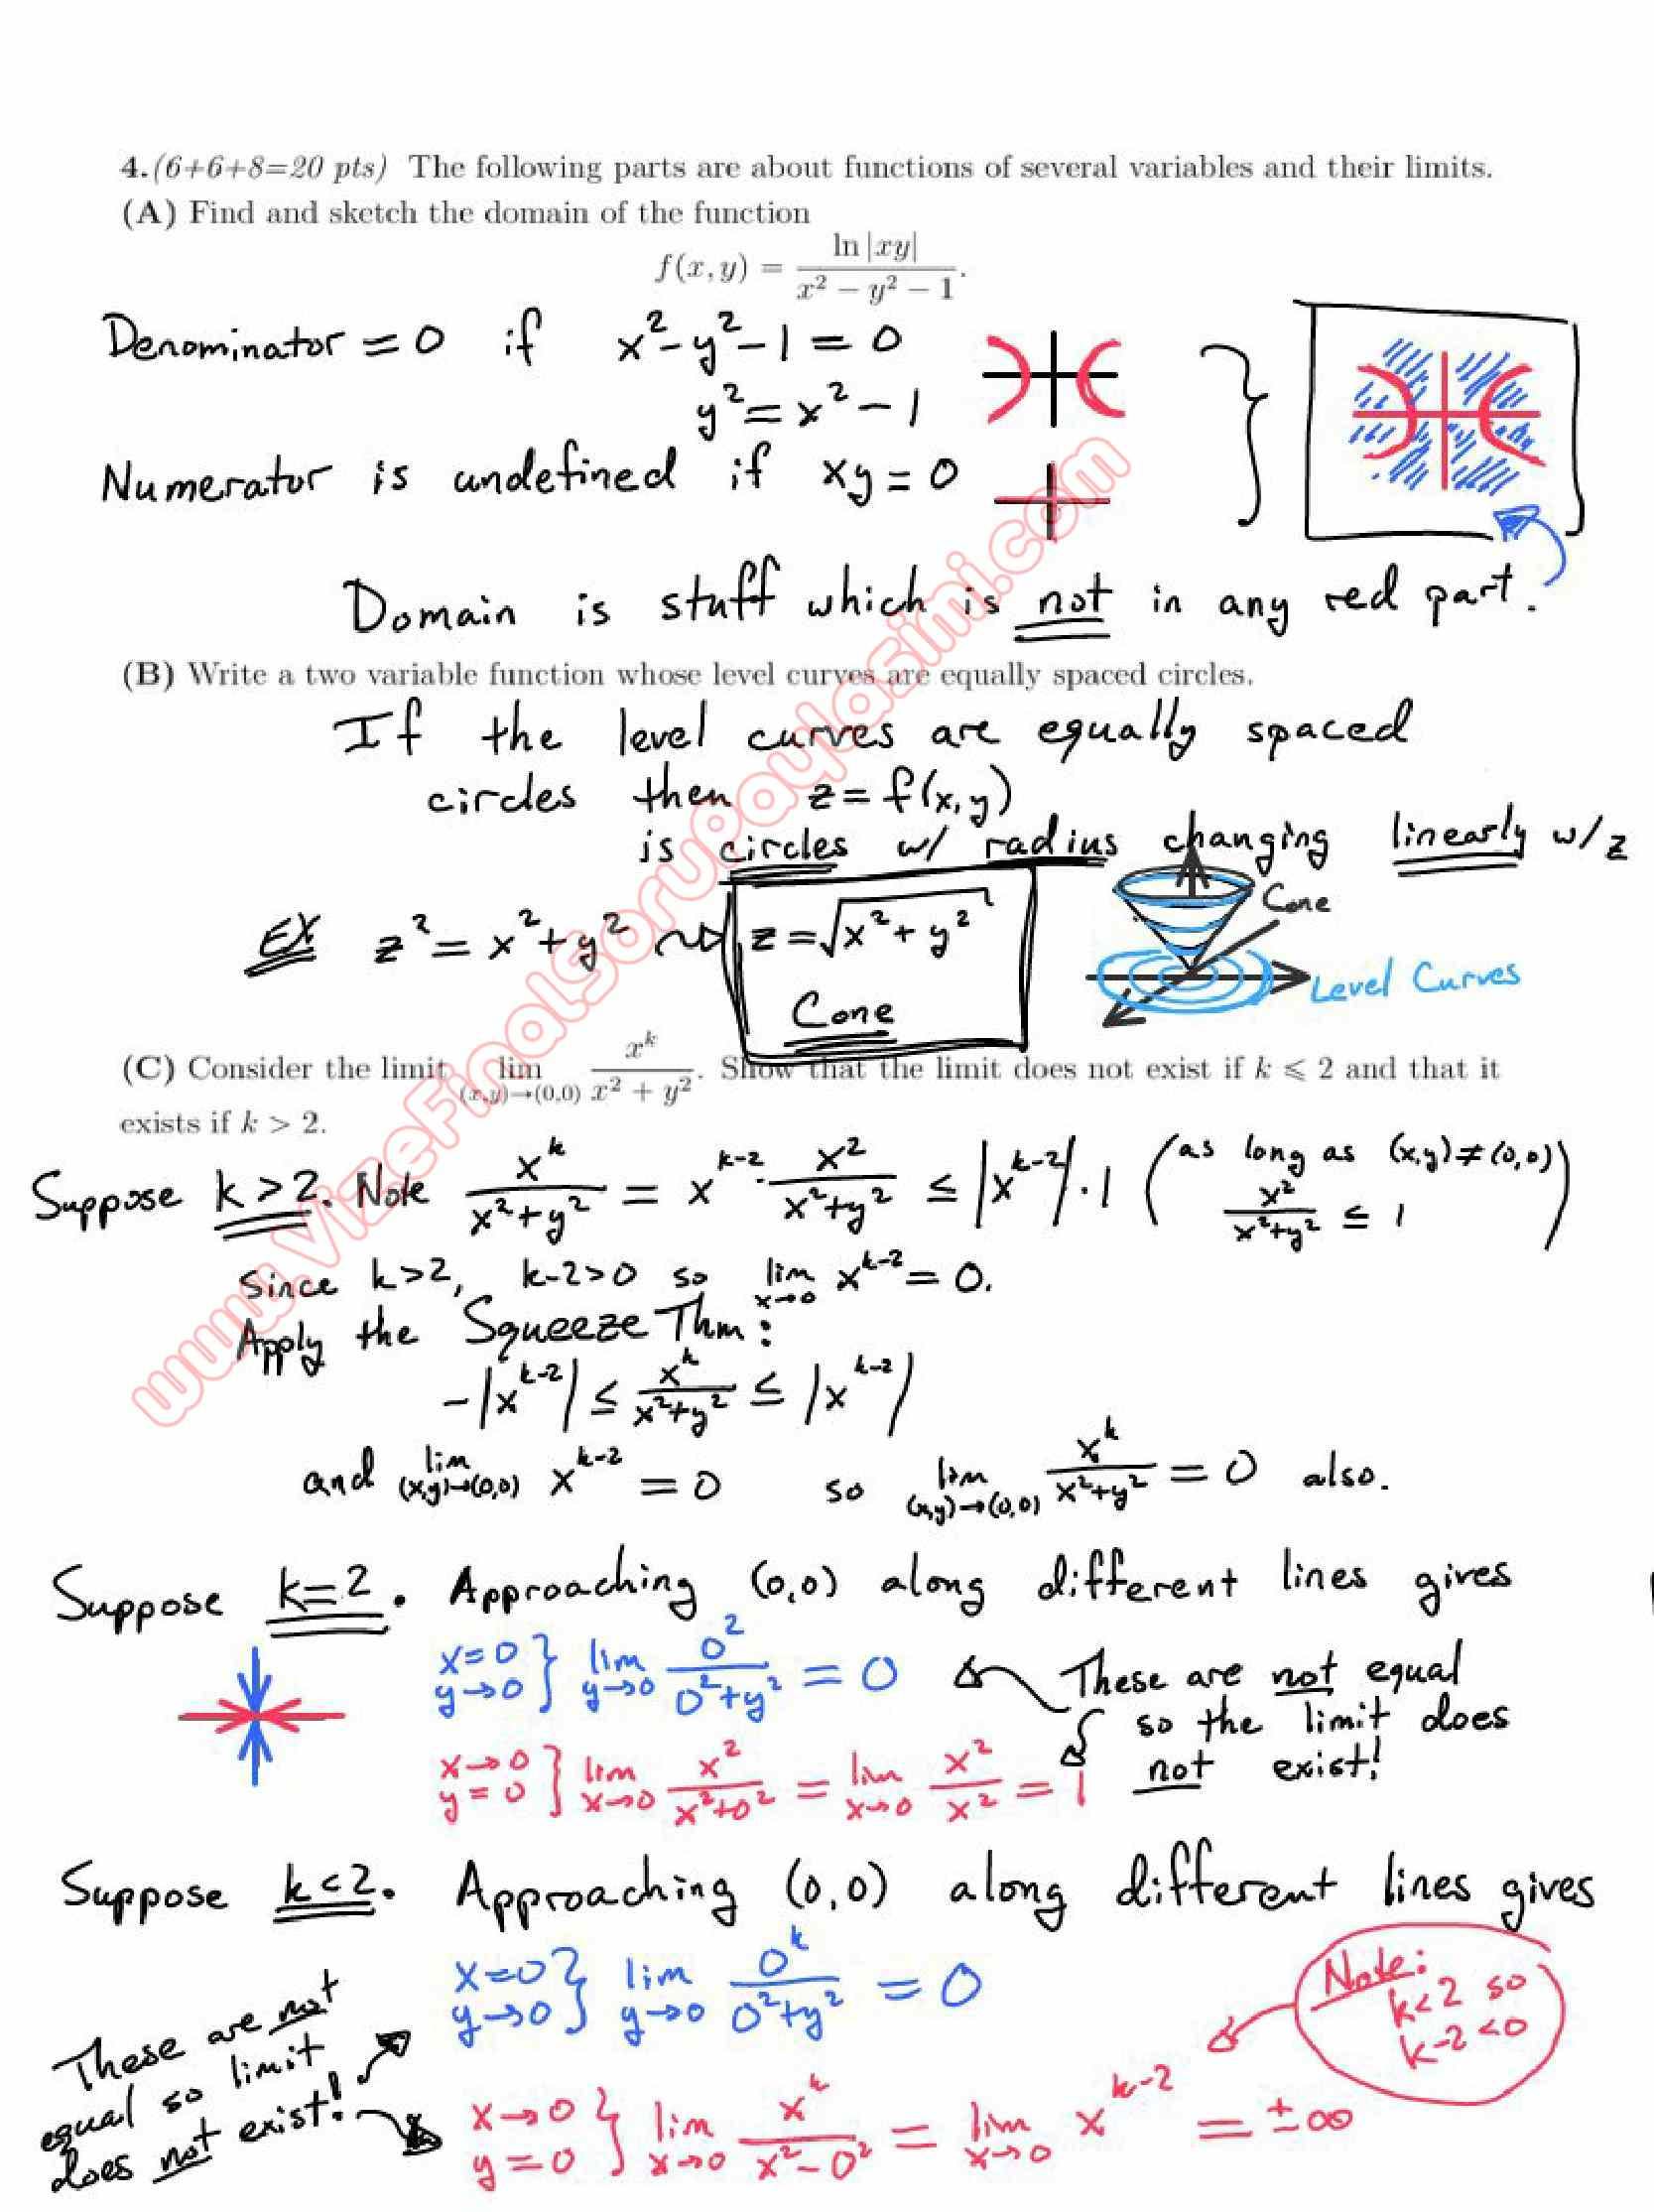 4.(6+6+8=20 pts) The following parts are about functions of several variables and their limits.
(A) Find and sketch the domain of the function
f(x, y) = ln |xy| / (x² − y² − 1).
Denominator = 0 if x²-y²-1 = 0
y² = x² - 1
Numerator is undefined if xy = 0
Domain is stuff which is not in any red part.
(B) Write a two variable function whose level curves are equally spaced circles.
If the level curves are equally spaced
circles then z = f(x,y)
is circles w/ radius changing linearly w/ z
EX z² = x² + y² z = √(x² + y²)
Cone
Cone
Level Curves
(C) Consider the limit lim (x,y)→(0,0) x^k / (x² + y²). Show that the limit does not exist if k ⩽ 2 and that it
exists if k > 2.
Suppose k > 2. Note x^k / (x²+y²) = x^(k-2) · x² / (x²+y²) ≤ |x^(k-2)| · 1 (as long as (x,y) ≠ (0,0) x² / (x²+y²) ≤ 1)
Since k > 2, k-2 > 0 so lim x→0 x^(k-2) = 0.
Apply the Squeeze Thm:
-|x^(k-2)| ≤ x^k / (x²+y²) ≤ |x^(k-2)|
and lim (x,y)→(0,0) x^(k-2) = 0 so lim (x,y)→(0,0) x^k / (x²+y²) = 0 also.
Suppose k = 2. Approaching (0,0) along different lines gives
x=0 y→0 } lim y→0 0² / (0²+y²) = 0
These are not equal
so the limit does
not exist!
x→0 y=0 } lim x→0 x² / (x²+0²) = lim x→0 x² / x² = 1
Suppose k < 2. Approaching (0,0) along different lines gives
x=0 y→0 } lim y→0 0^k / (0²+y²) = 0
Note:
k<2 so
k-2<0
These are not
equal so limit
does not exist!
x→0 y=0 } lim x→0 x^k / (x²-0²) = lim x→0 x^(k-2) = ±∞
www.VizeFinalSoruPaylasimi.com